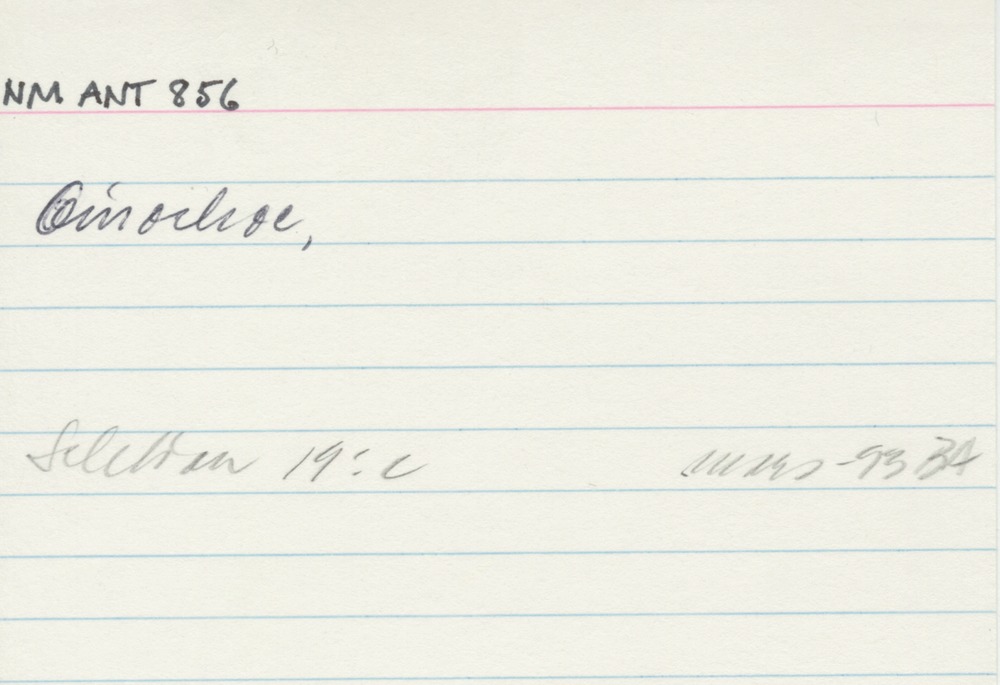 NM ANT 856
Oinochoe,
19:c mars -93 BA